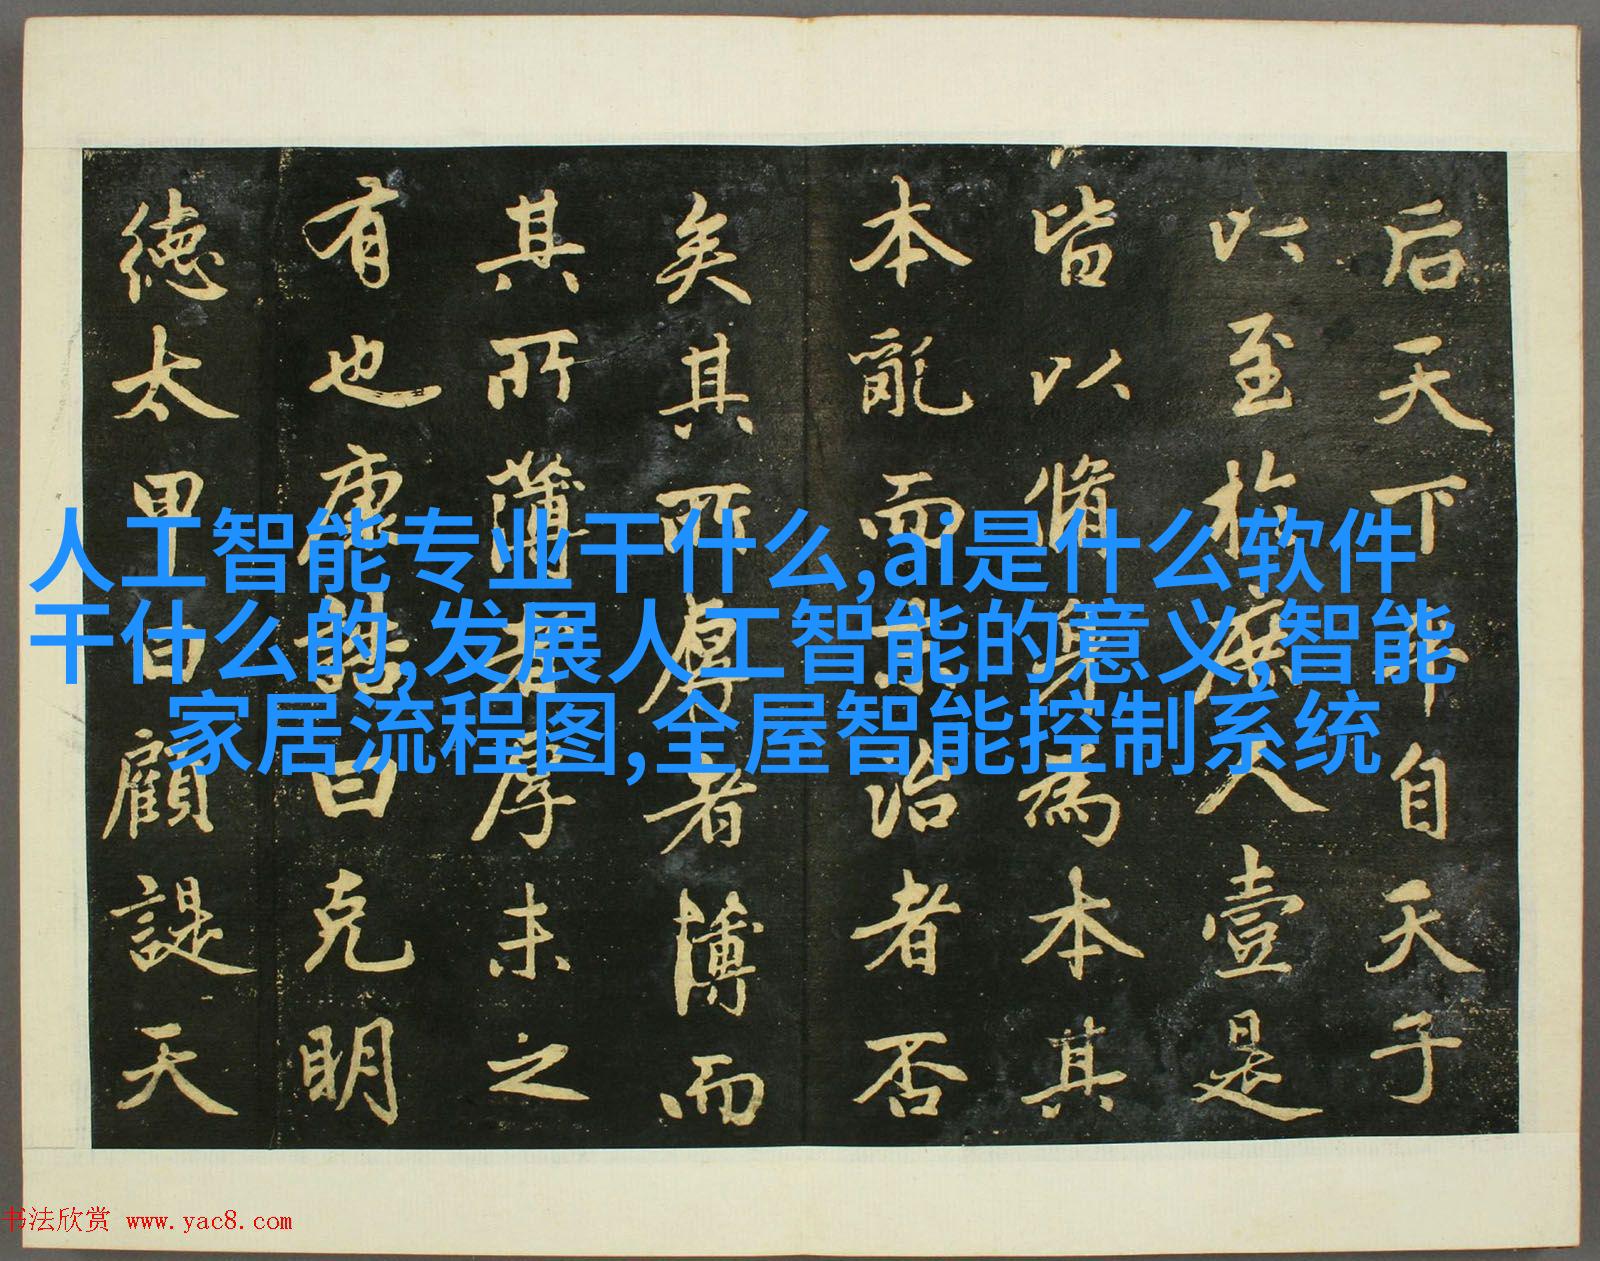 后天下平自天子
以至於庶人壹是
皆以脩身為本其
本亂而末治者否
矣其所厚者薄而
其所薄者厚未之
有也康誥曰克明
德太甲曰顧諟天
人工智能专业干什么,ai是什么软件
干什么的,发展人工智能的意义,智能
家居流程图,全屋智能控制系统
书法欣赏 www.yac8.com